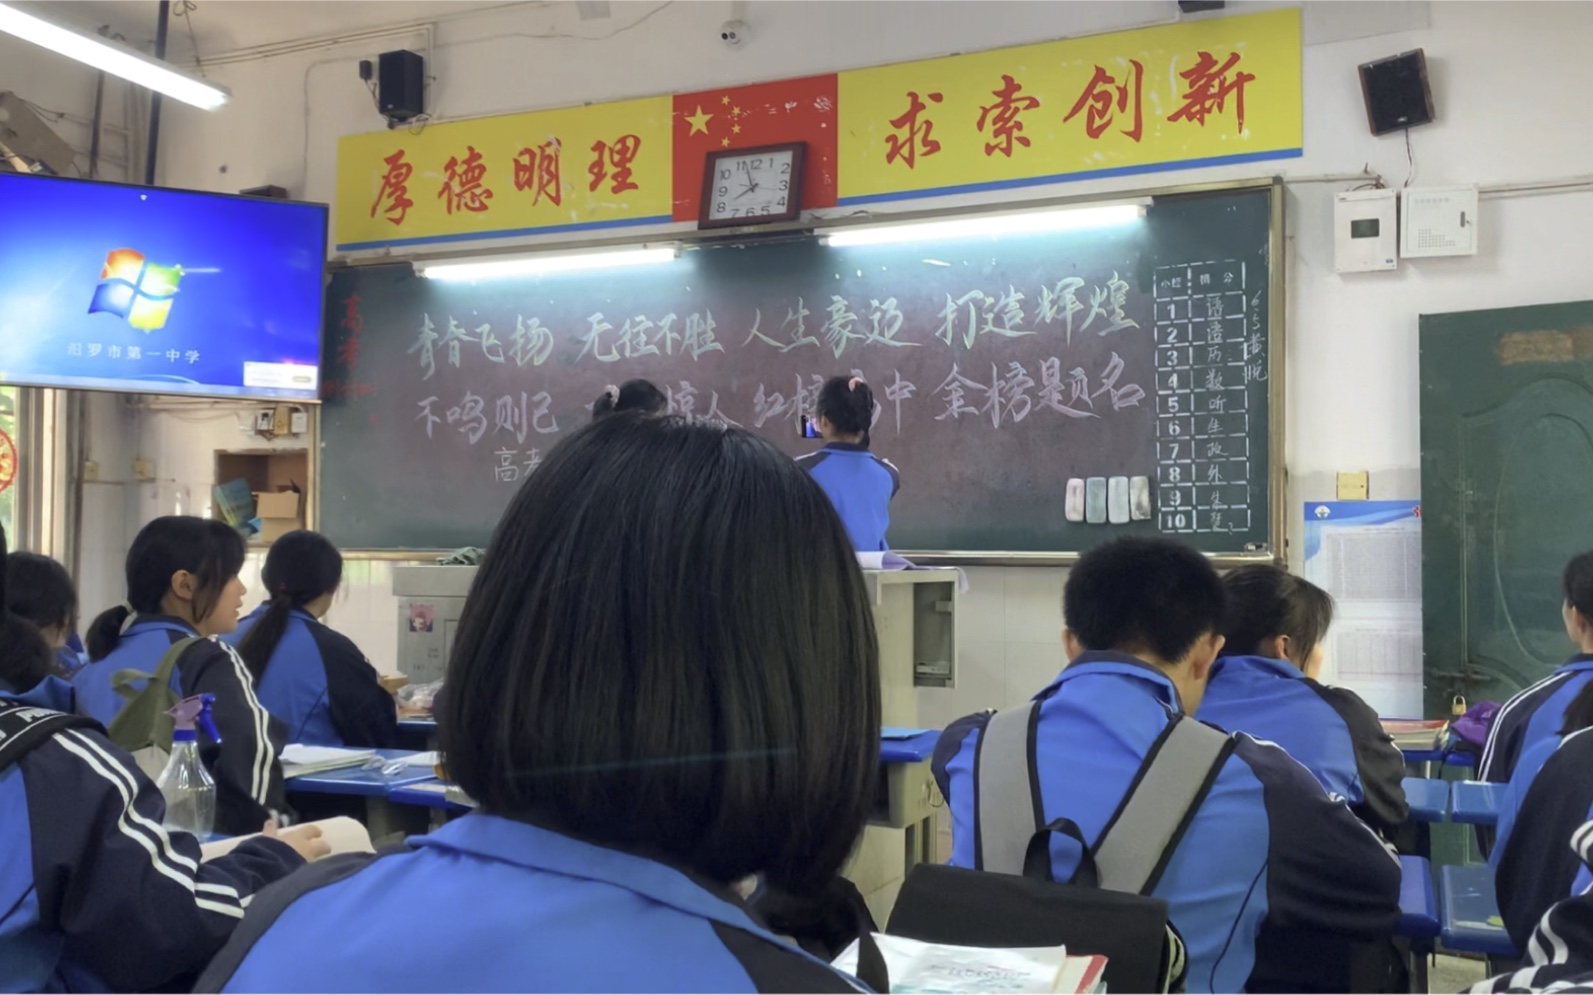 厚德明理
求索创新
10 11 12 1 2 3 4 5 6 7 8 9
汨罗市第一中学
青春飞扬 无往不胜 人生豪迈 打造辉煌
不鸣则已 惊人 红榜高中 金榜题名
高考
高考
小组 得分
1 语
2 语
3 历
4 数
5 听
6 生
7 政
8 外
9
10